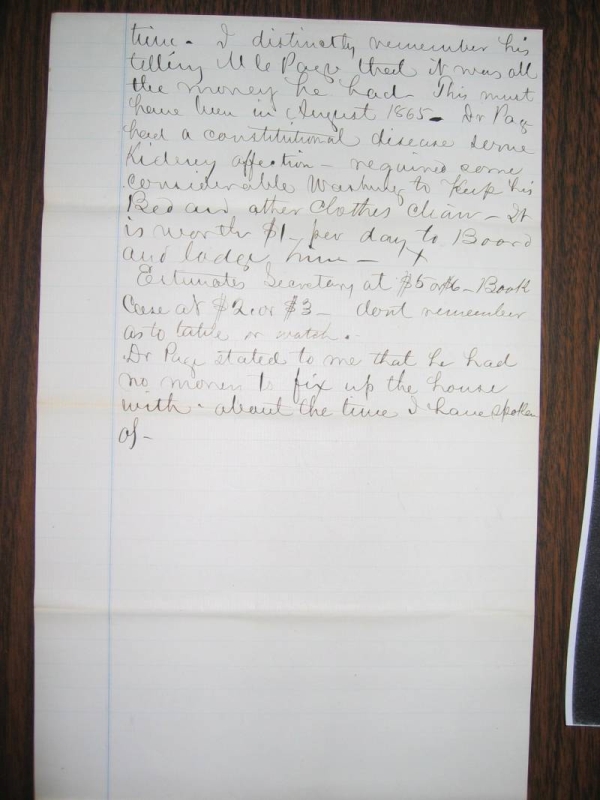 time. I distinctly remember his
telling M le Page that it was all
the money he had This must
have been in August 1865 - Dr Page
had a constitutional disease some
Kidney affection - required some
considerable Washing to Keep his
Bed and other Clothes clean - It
is worth $1 - per day to Board
and lodge him - x
Estimates Secretary at $5 or $6 - Book
Case at $2. or $3 - dont remember
as to table or watch.
Dr Page stated to me that he had
no money to fix up the house
with - about the time I have spoken
of -